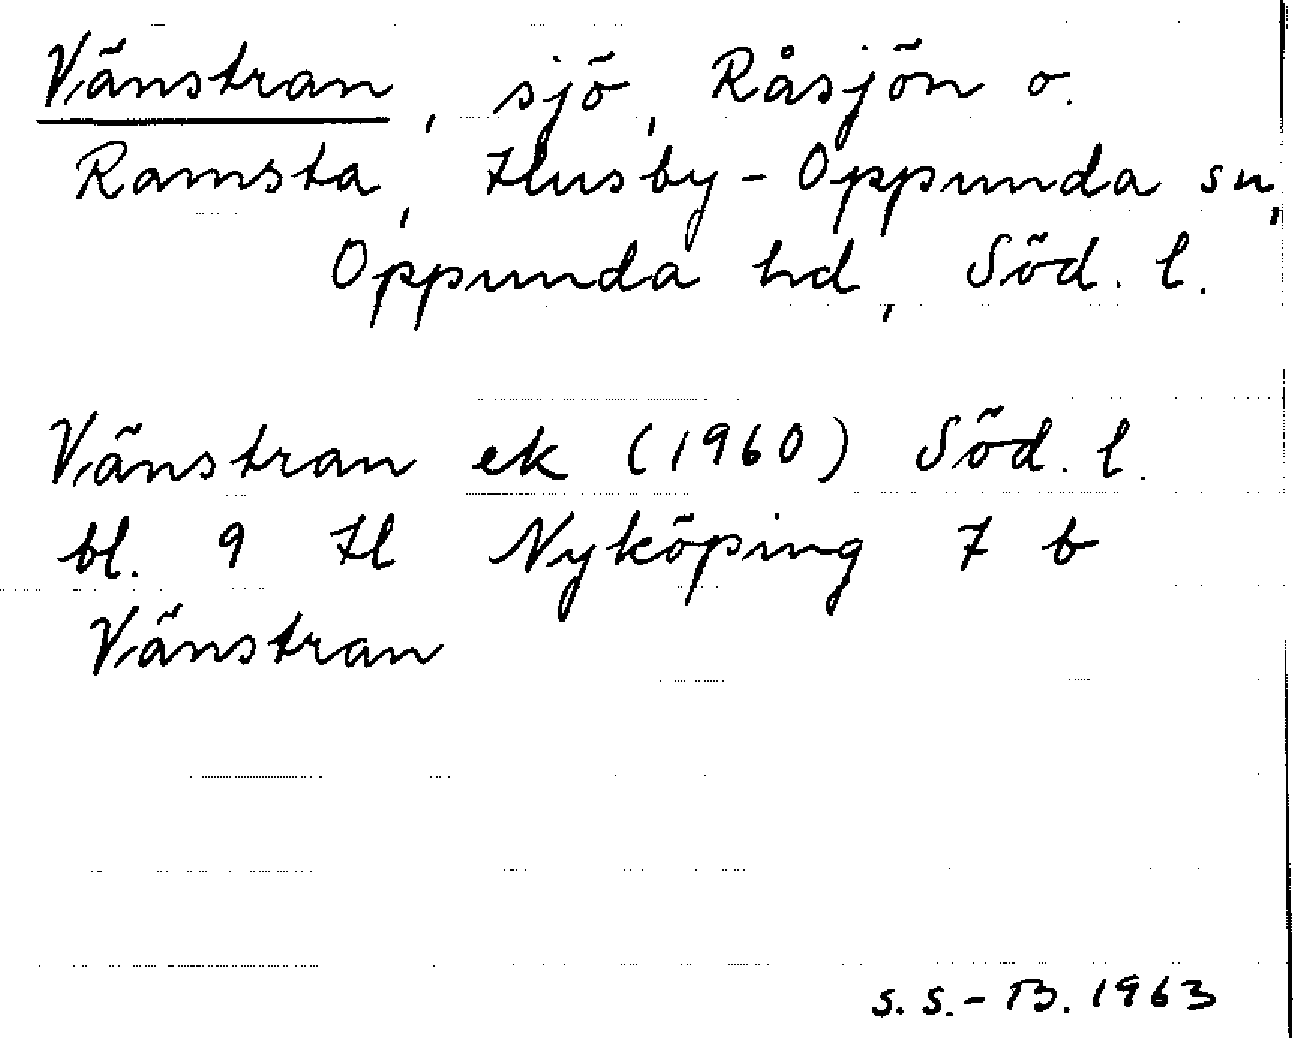 Vänstran, sjö, Råsjön o.
Ramsta, Husby-Oppunda sn,
Oppunda hd, Söd. l.
Vänstran ek (1960) Söd. l.
bl. 9 H Nyköping 7 b
Vänstran
S. S.-B. 1963